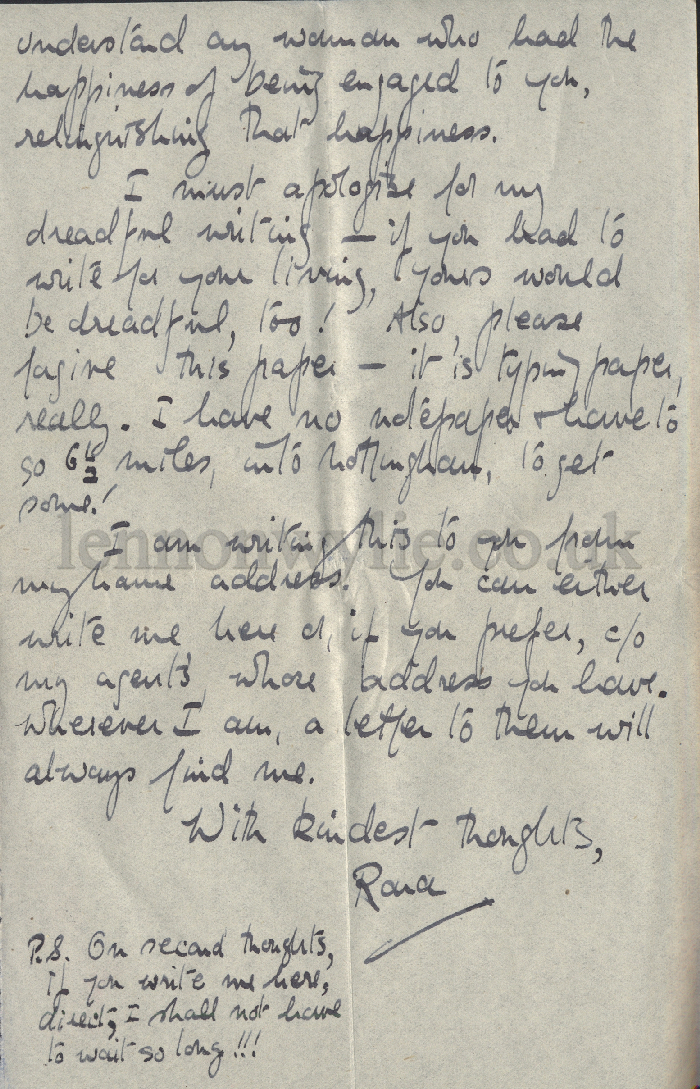 understand any woman who had the
happiness of being engaged to you,
relinquishing that happiness.
I must apologise for my
dreadful writing — if you had to
write for your living, yours would
be dreadful, too! Also, please
forgive this paper — it is typing paper,
really. I have no notepaper & have to
go 6½ miles, into Nottingham, to get
some!
lennonwylie.co.uk
I am writing this to you from
my home address. You can either
write me here or, if you prefer, c/o
my agents, whose address you have.
Wherever I am, a letter to them will
always find me.
With kindest thoughts,
Rona
P.S. On second thoughts,
if you write me here,
direct, I shall not have
to wait so long!!!